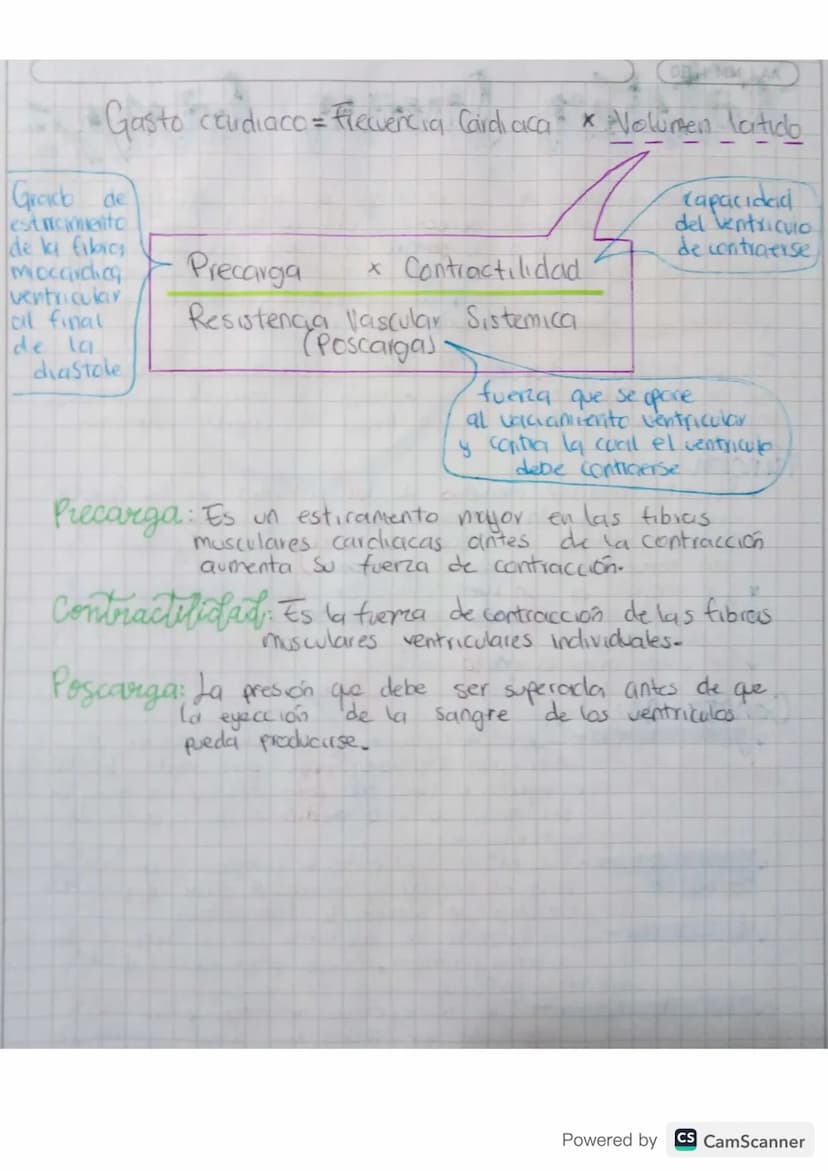 Gasto cardiaco = Frecuencia Cardiaca x Volumen latido
Grado de
estiramiento
de la fibra
miocardica
ventricular
al final
de la
diastole
capacidad
del ventriculo
de contraerse
Precarga x Contractilidad
Resistencia Vascular Sistemica
(Poscarga)
fuerza que se opone
al vaciamiento ventricular
y contra la cual el ventriculo
debe contraerse
Precarga: Es un estiramento mayor en las fibras
musculares cardiacas antes de la contracción
aumenta su fuerza de contracción.
Contractilidad: Es la fuerza de contracción de las fibras
musculares ventriculares individuales.
Poscarga: La presión que debe ser superada antes de que
la eyección de la sangre de los ventriculos
pueda producirse.
Powered by CS CamScanner